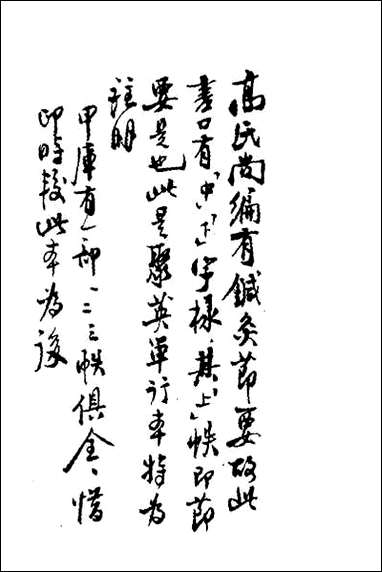 高氏尚编有鍼灸節要故此
書口有「中」「下」字樣，其「上」帙即節
要是也此是聚英單行本特为
註明
甲庫有一部、一二三帙俱全、惜
印時較此本为後